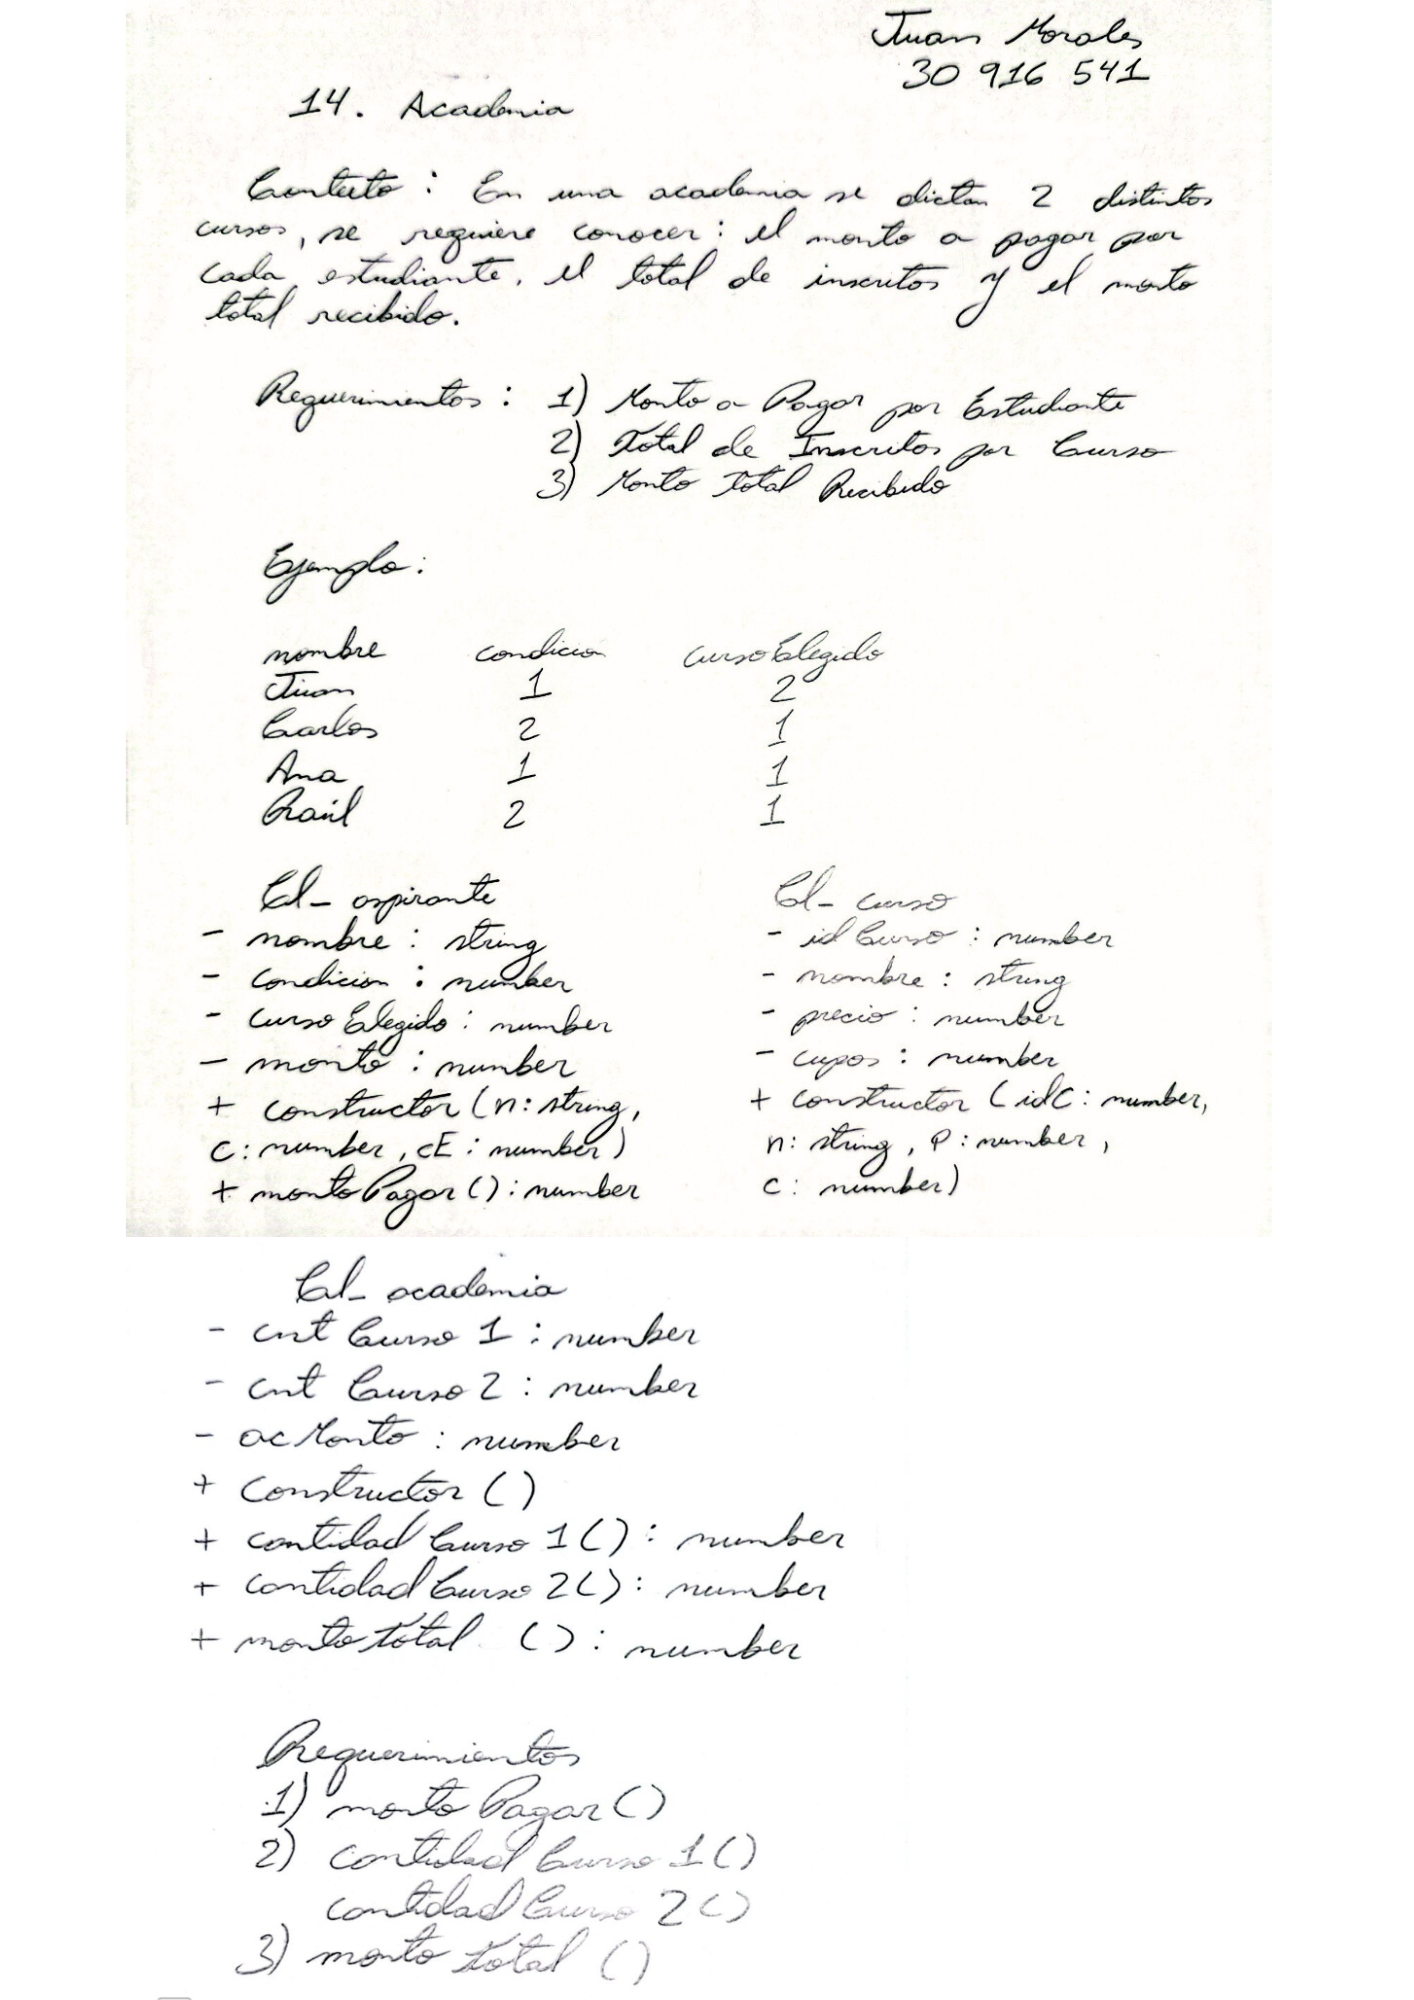 Juan Morales
30 916 541
14. Academia
Contexto : En una academia se dictan 2 distintos
cursos, se requiere conocer : el monto a pagar por
cada estudiante, el total de inscritos y el monto
total recibido.
Requerimientos : 1) Monto a Pagar por Estudiante
2) Total de Inscritos por Curso
3) Monto Total Recibido
Ejemplo :
nombre condicion cursoElegido
Juan 1 2
Carlos 2 1
Ana 1 1
Raúl 2 1
Cl_aspirante
- nombre : string
- condicion : number
- cursoElegido : number
- monto : number
+ constructor (n: string,
c: number, cE : number)
+ montoPagar () : number
Cl_curso
- idCurso : number
- nombre : string
- precio : number
- cupos : number
+ constructor (idC : number,
n: string, p : number,
c : number)
Cl_academia
- cntCurso1 : number
- cntCurso2 : number
- acMonto : number
+ constructor ()
+ cantidadCurso1() : number
+ cantidadCurso2() : number
+ montoTotal () : number
Requerimientos
1) montoPagar ()
2) cantidadCurso1 ()
cantidadCurso2 ()
3) montoTotal ()